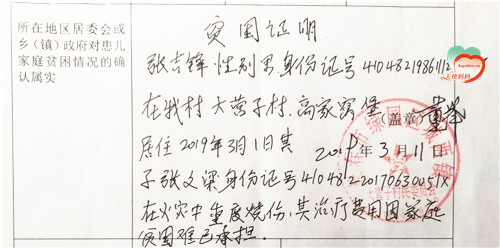 所在地区居委会或
乡(镇)政府对患儿
家庭贫困情况的确
认属实
贫困证明
张吉锋 性别男 身份证号 41048219861112
在我村 大营子村 高家窝堡
(盖章)
居住 2019年3月1日其
2019年3月11日
子张文梁 身份证号 41048220170630051X
在火灾中重度烧伤，其治疗费用因家庭
贫困难已承担.
天使妈妈